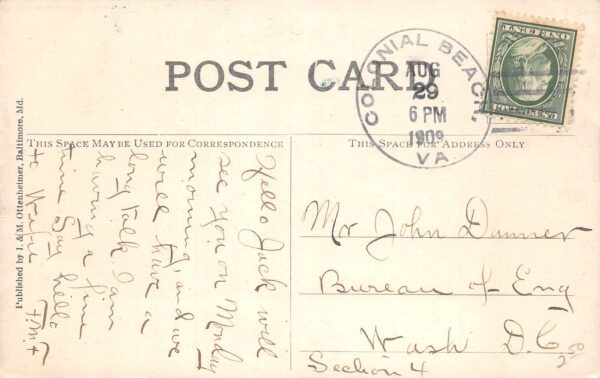 POST CARD
COLONIAL BEACH,
AUG
29
6 PM
1909
VA
U.S. POSTAGE
ONE CENT
THIS SPACE MAY BE USED FOR CORRESPONDENCE
THIS SPACE FOR ADDRESS ONLY
Published by I. & M. Ottenheimer, Baltimore, Md.
Hello Jack will
see you on Monday
morning, and we
will have a
long talk I am
having a fine
time Say hello
to
F.M.F
Mr John Danner
Bureau of Eng
Wash D.C.
Section 4
2.50